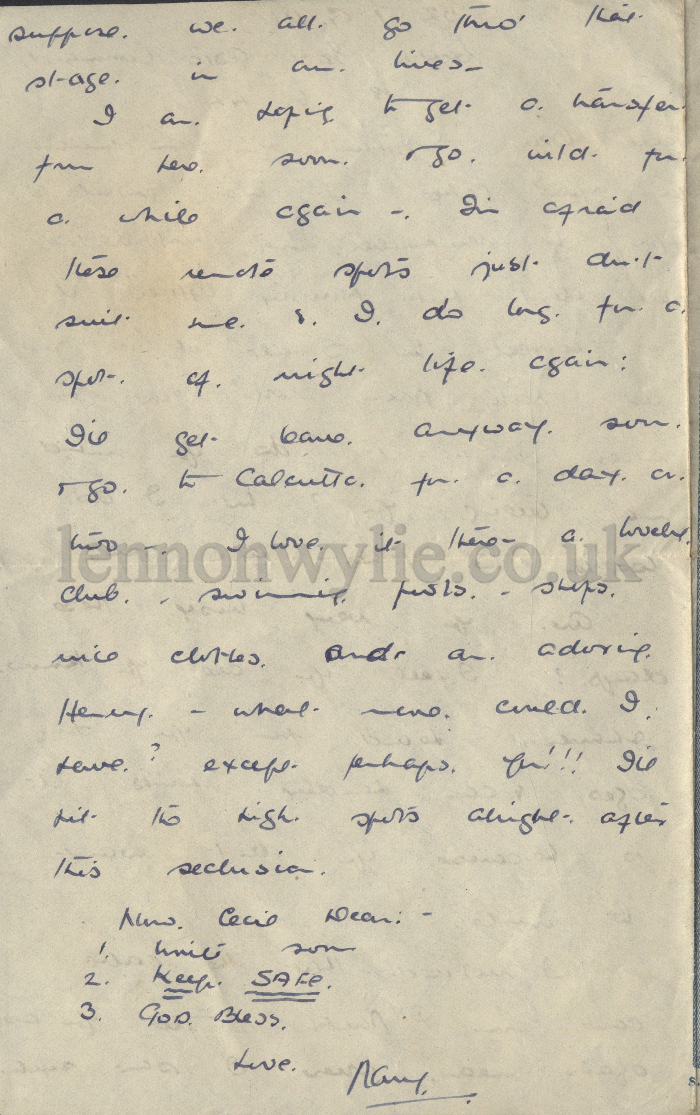 suppose. we. all. go thro' that
stage. in our lives -
I am. hoping to get a. transfer
from here. soon. & go. wild. for
a. while again -. I'm afraid
these remote spots just don't
suit me. & I. do long. for a
spot. of. night life. again:
I'll get leave. anyway. soon.
& go. to Calcutta. for. a. day. or.
two -. I love. it there - a. lovely
club. - swimming pools. - shops.
nice clothes. and an adoring.
Henry. - what more could. I.
have? except perhaps. you!!! I'll
hit the high. spots alright. after
this seclusion.
Now. Cecil Dear: -
1. Write soon
2. Keep. SAFE.
3. God. Bless.
Love. Mary.
lennonwylie.co.uk